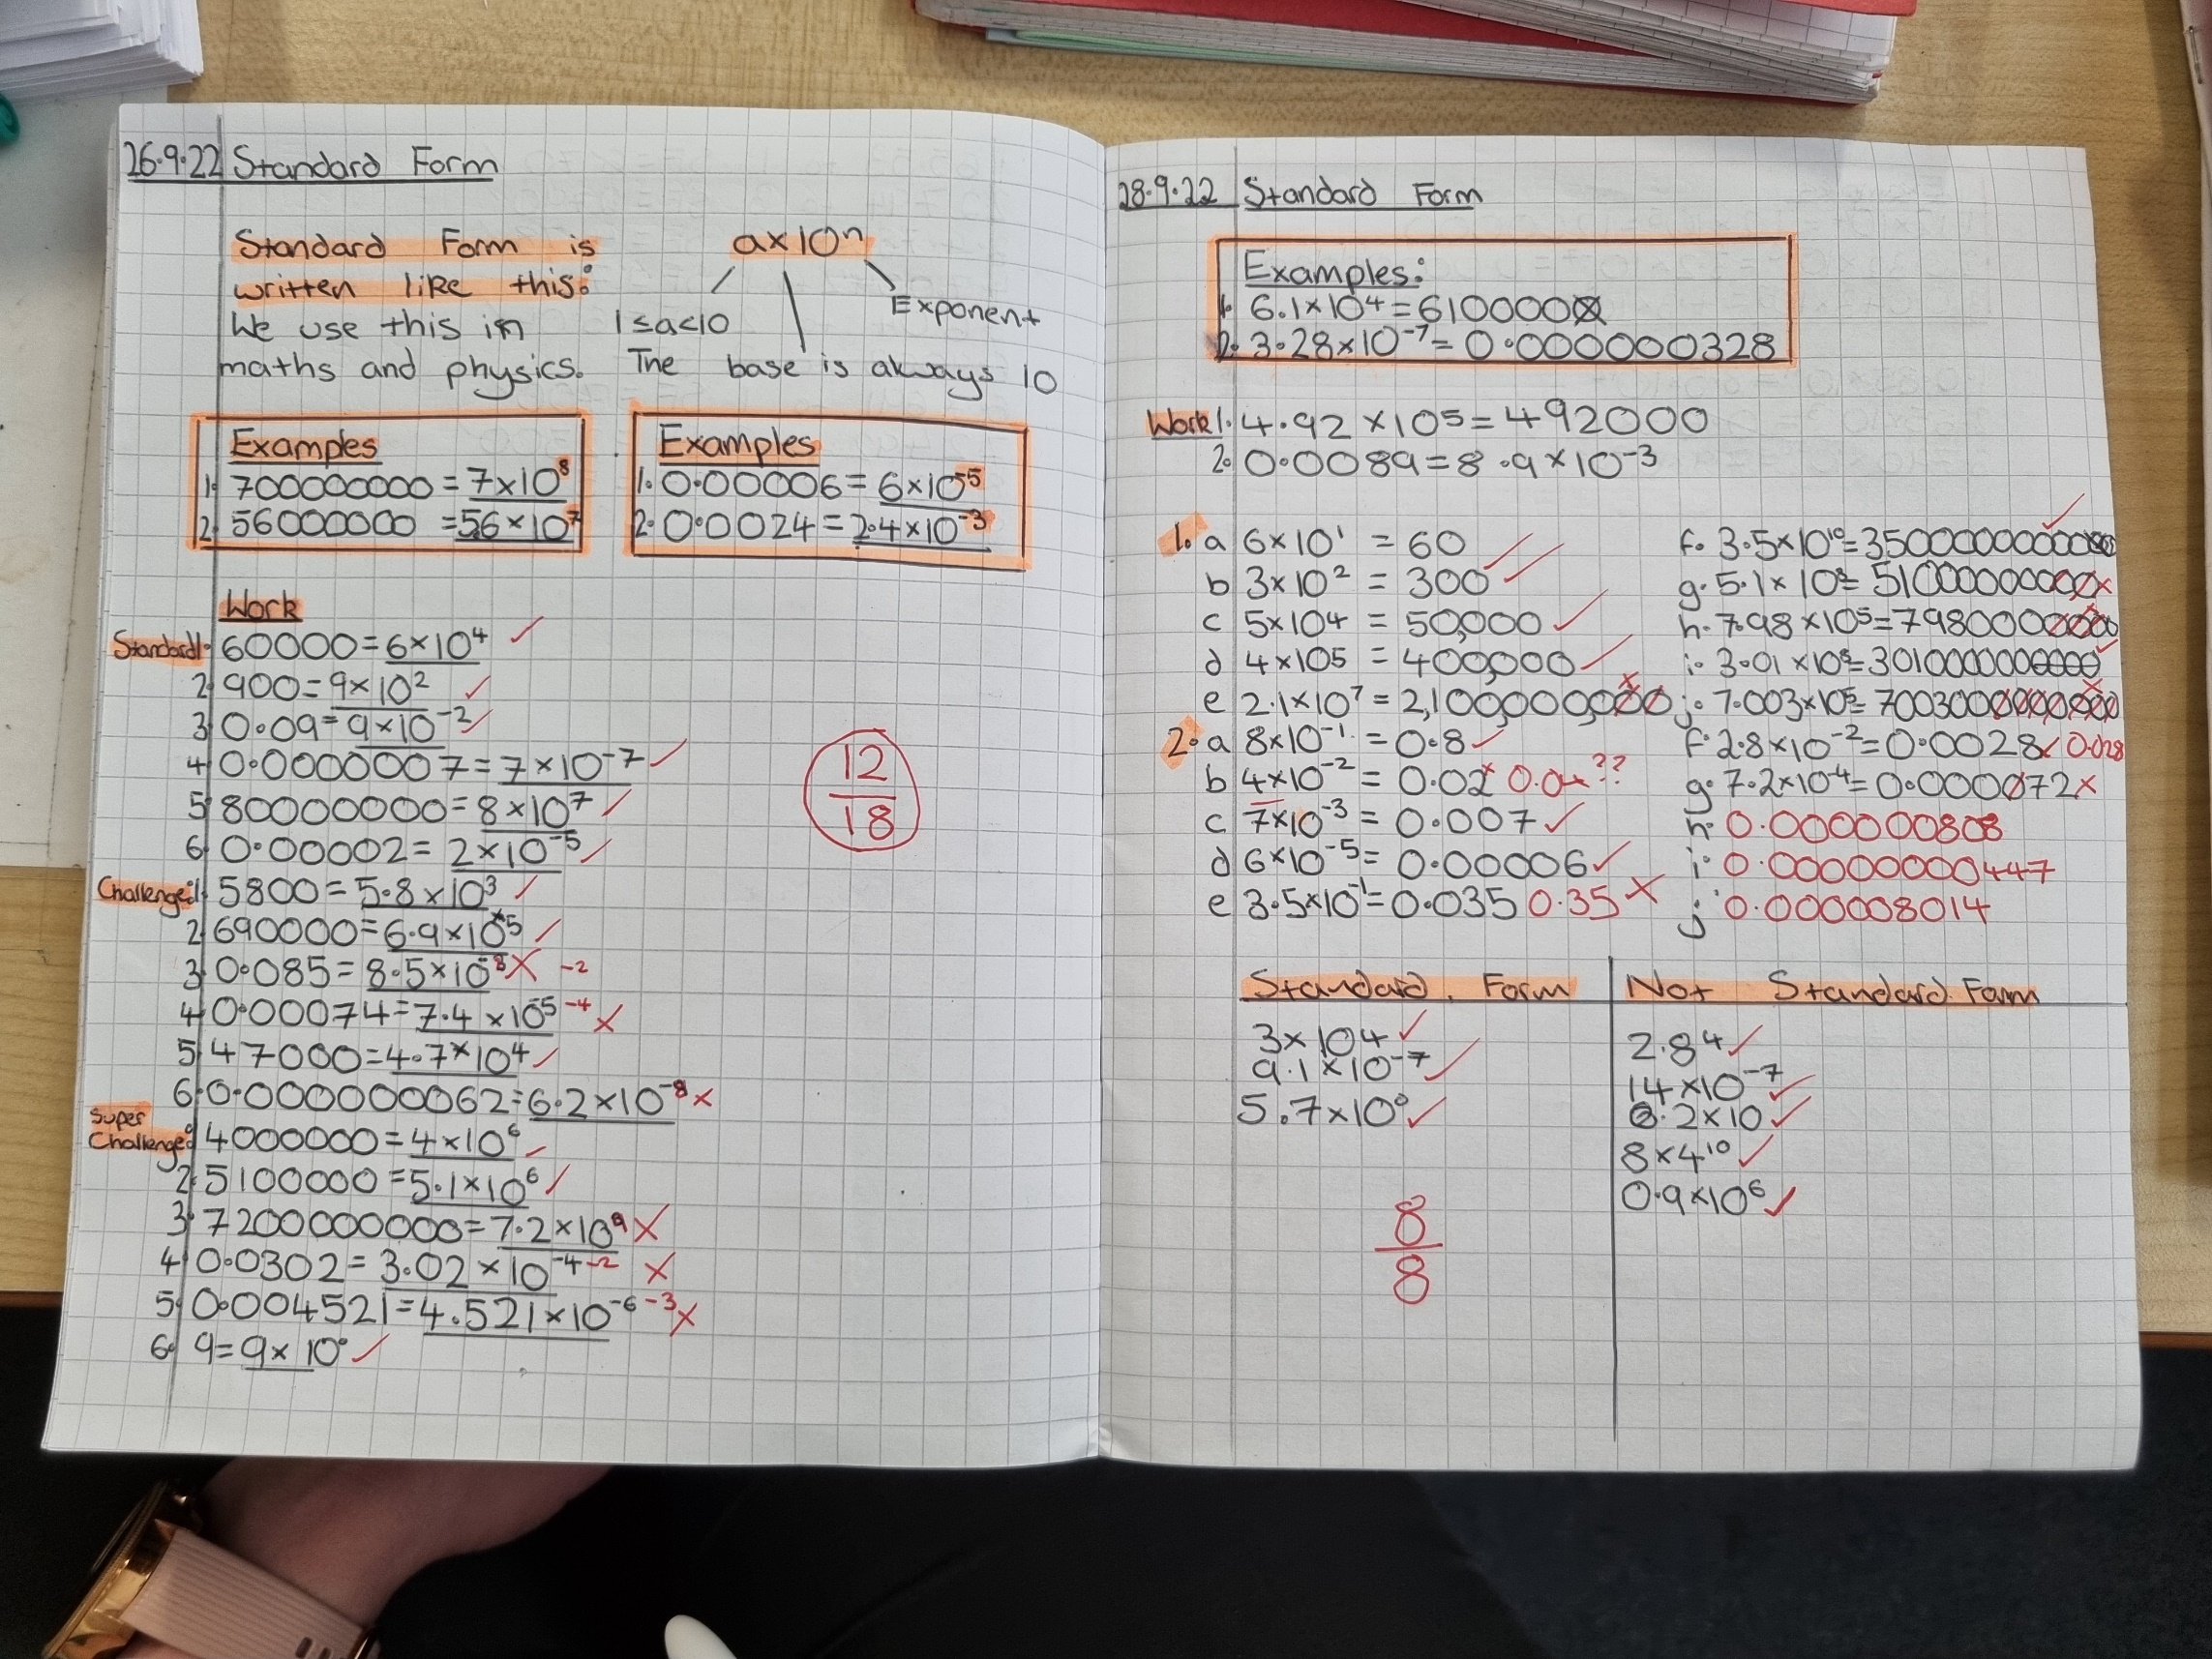 26.9.22 Standard Form
Standard Form is
written like this:
We use this in
maths and physics.
a×10ⁿ
1≤a<10
Exponent
The base is always 10
Examples
1. 700000000 = 7×10⁸
2. 56000000 = 5.6×10⁷
Examples
1. 0.00006 = 6×10⁻⁵
2. 0.0024 = 2.4×10⁻³
Work
Standard 1. 60000 = 6×10⁴ ✓
2. 900 = 9×10² ✓
3. 0.09 = 9×10⁻² ✓
4. 0.0000007 = 7×10⁻⁷ ✓
5. 80000000 = 8×10⁷ ✓
6. 0.00002 = 2×10⁻⁵ ✓
Challenge: 1. 5800 = 5.8×10³ ✓
2. 690000 = 6.9×10⁵ ✓
3. 0.085 = 8.5×10 ✗ -2
4. 0.00074 = 7.4×10⁻⁵ -4 ✗
5. 47000 = 4.7×10⁴ ✓
6. 0.000000062 = 6.2×10⁻⁸ ✗
Super
Challenge: 4000000 = 4×10⁶ ✓
2. 5100000 = 5.1×10⁶ ✓
3. 7200000000 = 7.2×10⁹ ✗
4. 0.0302 = 3.02×10⁻⁴ -2 ✗
5. 0.004521 = 4.521×10⁻⁶ -3 ✗
6. 9 = 9×10⁰ ✓
12
18
28.9.22 Standard Form
Examples:
1. 6.1×10⁴ = 610000
2. 3.28×10⁻⁷ = 0.000000328
Work 1. 4.92×10⁵ = 492000
2. 0.0089 = 8.9×10⁻³
1. a 6×10¹ = 60 ✓
b 3×10² = 300 ✓
c 5×10⁴ = 50,000 ✓
d 4×10⁵ = 400,000 ✓
e 2.1×10⁷ = 2,100,000,000 ✗
2. a 8×10⁻¹ = 0.8 ✓
b 4×10⁻² = 0.02 ✗ 0.04 ??
c 7×10⁻³ = 0.007 ✓
d 6×10⁻⁵ = 0.00006 ✓
e 3.5×10⁻¹ = 0.035 0.35 ✗
f. 3.5×10¹⁰ = ✓
g. 5.1×10 = ✗
h. 7.98×10⁵ =
i. 3.01×10 = ✓
j. 7.003×10 = ✗
f. 2.8×10⁻² = 0.0028 0.028
g. 7.2×10⁻⁴ = 0.000072 ✗
h. 0.000000808
i. 0.00000000447
j 0.000008014
Standard Form
3×10⁴ ✓
9.1×10⁻⁷ ✓
5.7×10⁰ ✓
8
8
Not Standard Form
2.8⁴ ✓
14×10⁻⁷ ✓
.2×10 ✓
8×4¹⁰ ✓
0.9×10⁶ ✓